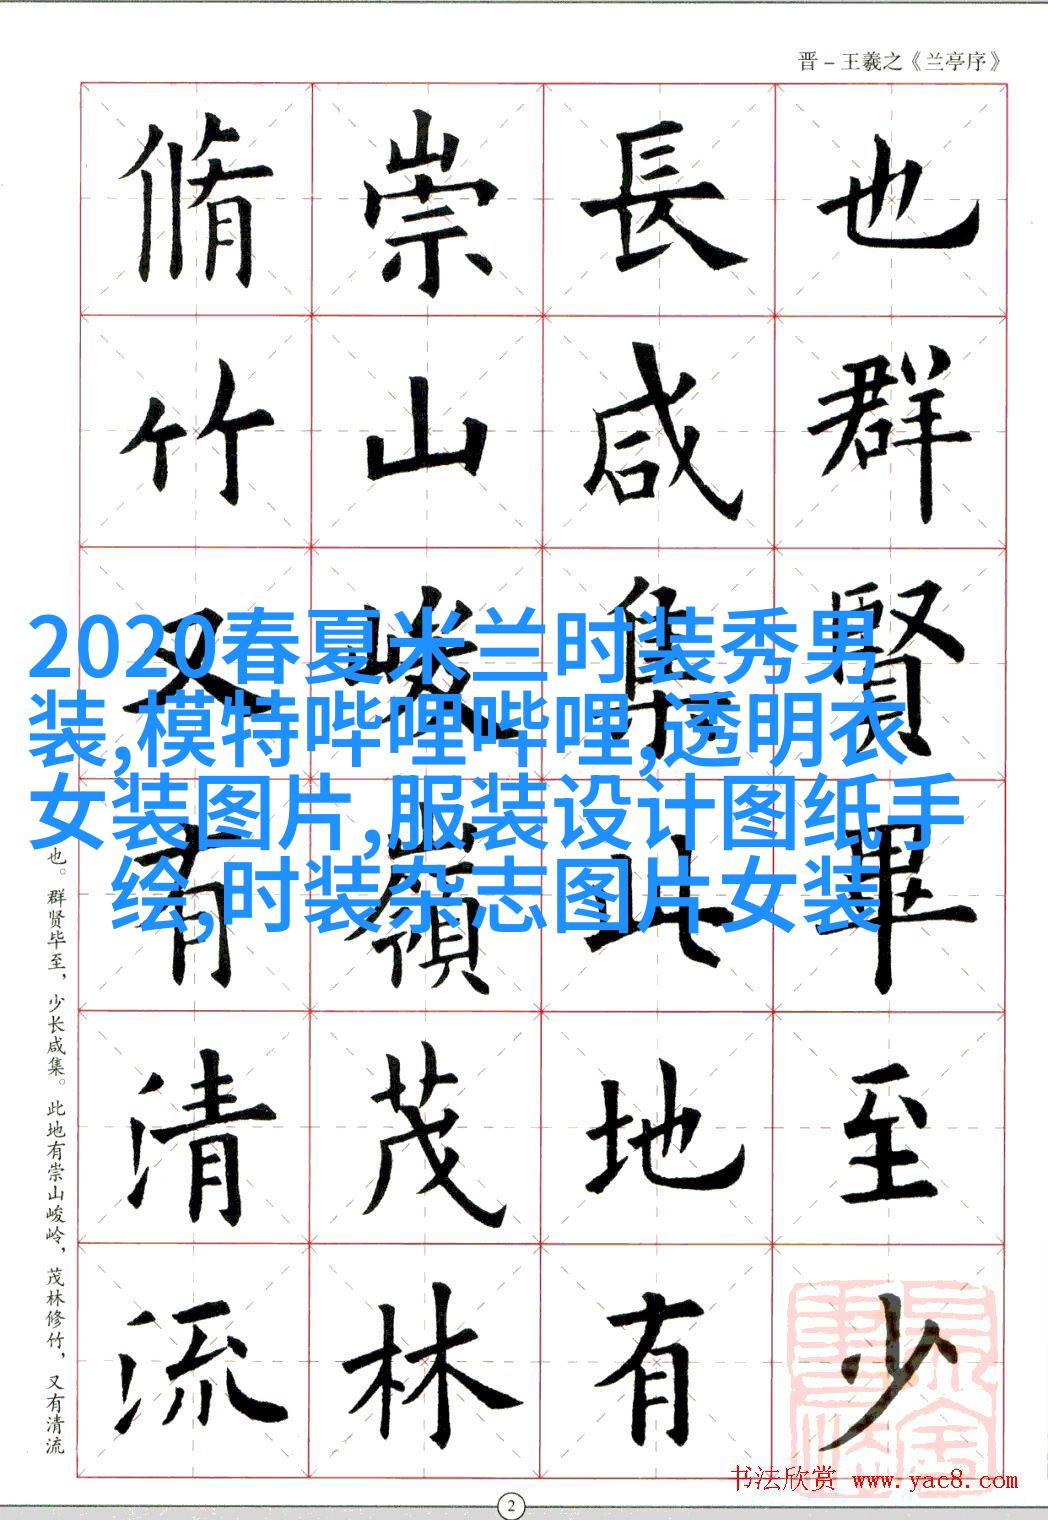 晋－王羲之《兰亭序》
也群賢畢至少
長咸集此地有
崇山峻嶺茂林
脩竹又有清流
2020春夏米兰时装秀男
装,模特哔哩哔哩,透明衣
女装图片,服装设计图纸手
绘,时装杂志图片女装
也。群贤毕至，少长咸集。此地有崇山峻岭，茂林修竹，又有清流
书法欣赏 www.yac8.com
2